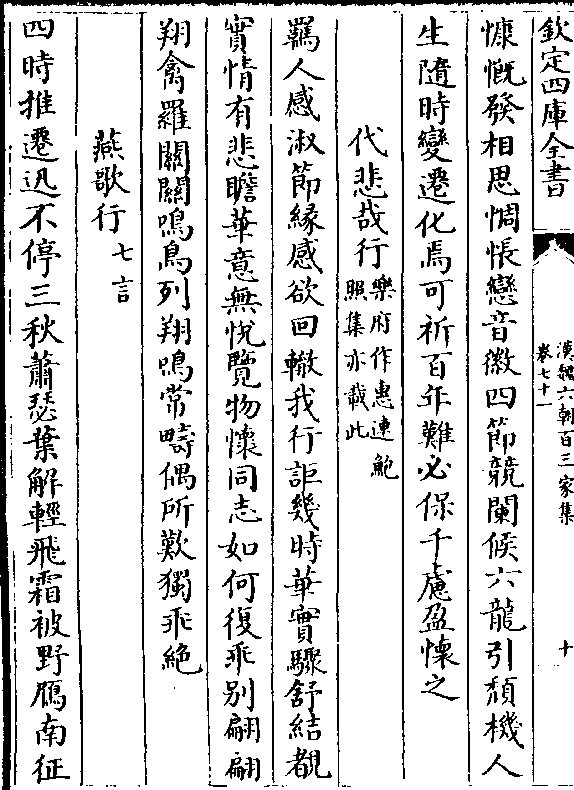 欽定四庫全書
漢魏六朝百三家集
卷七十一
十
慷慨發相思惆悵戀音徽四節競闌候六龍引頹機人
生隨時變遷化焉可祈百年難必保千慮盈懷之
代悲哉行樂府作惠連鮑
照集亦載此
羇人感淑節緣感欲回轍我行詎幾時華實驟舒結覩
實情有悲瞻華意無悅覽物懷同志如何復乖别翩翩
翔禽羅關關鳴鳥列翔鳴常疇偶所歎獨乖絶
燕歌行七言
四時推遷迅不停三秋蕭瑟葉解輕飛霜被野鴈南征